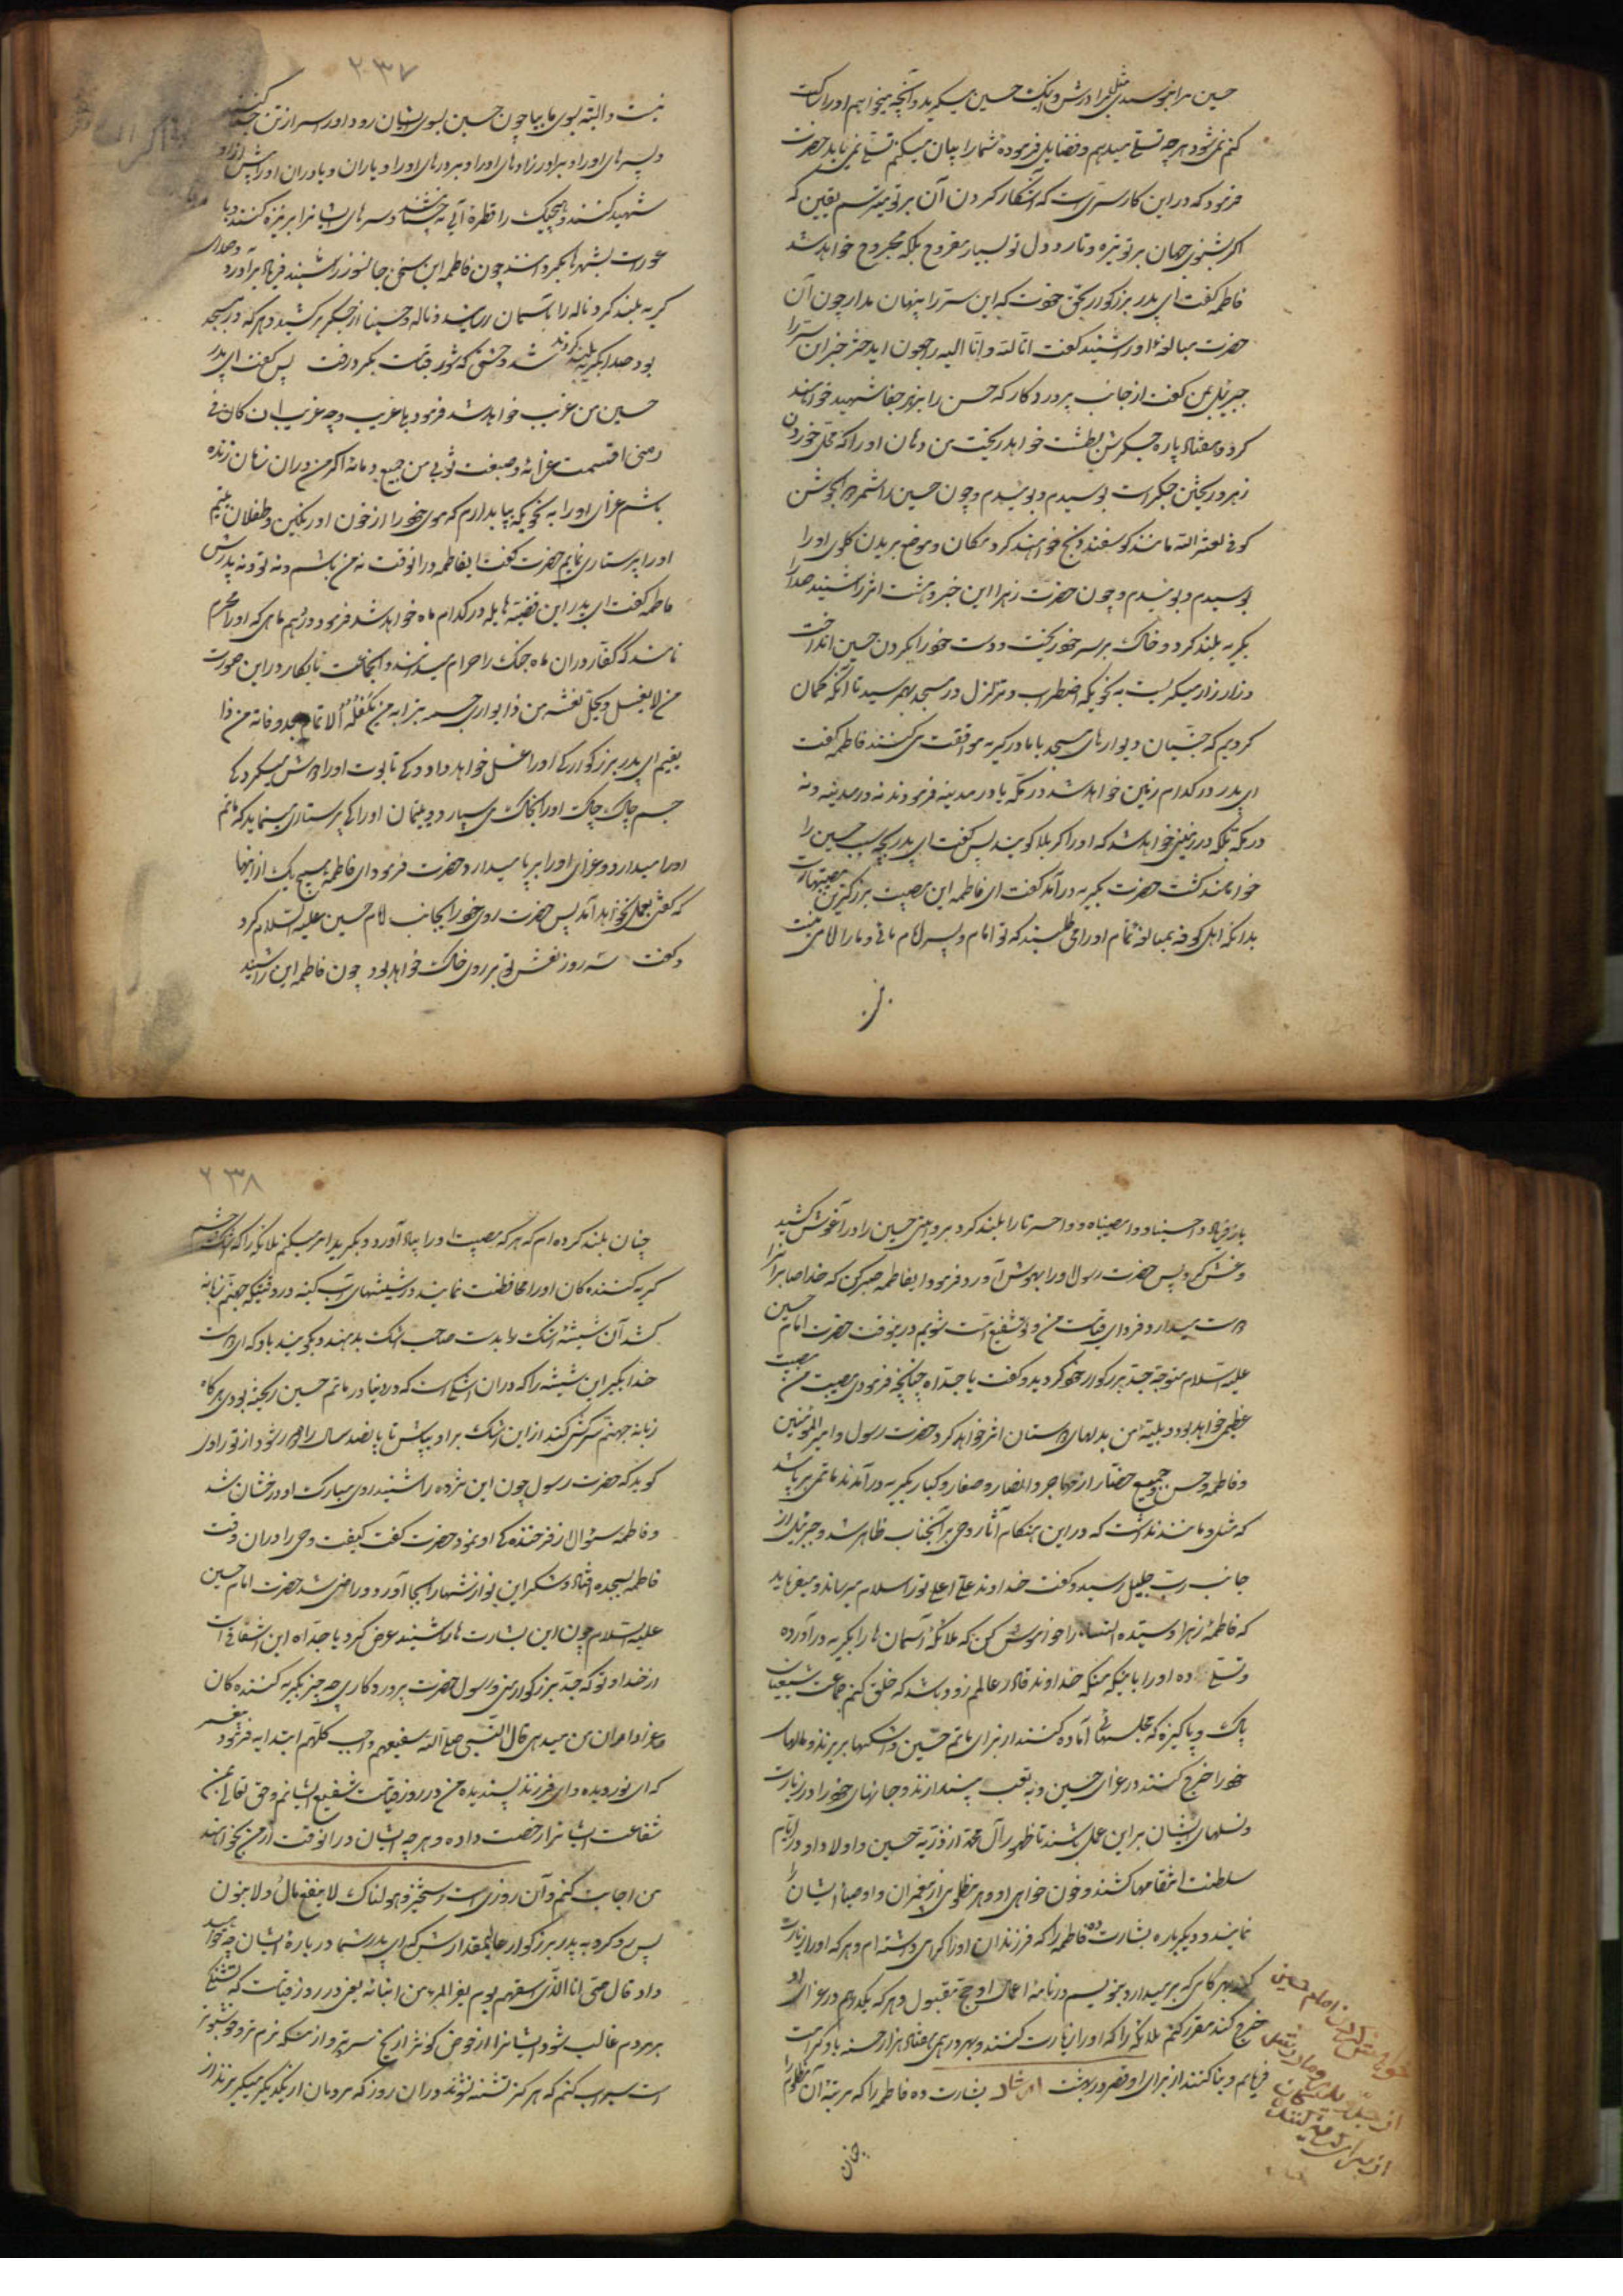 حسین مرا نبوسیدی مثل برادرش و اینک حسین میگرید و آنچه میخواهم او را ساکت
کنم نمی‌شود هر چه تسلی میدهم و فضایل فرموده شما را بیان میکنم تسلی نمی‌یابد حضرت
فرمود که در این کار سریست که آشکار کردن آن بر تو میترسم یقین که
اگر بشنوی جهان بر تو تیره و تار و دل تو بسیار مقروح بلکه مجروح خواهد شد
فاطمه گفت ای پدر بزرگوار بحق خدت که این سر را پنهان مدار چون آن
حضرت مبالغه او را شنید گفت انا لله و انا الیه راجعون ای دختر خبر این سر را
جبرئیل بمن گفت از جانب پروردگار که حسن را بزهر جفا شهید خواهند
کرد و هفتاد پاره جگرش بطشت خواهد ریخت من دهان او را که محل خوردن
زهر و ریختن جگر است بوسیدم و بوئیدم و چون حسین را شمر ذی الجوشن
کوفی لعنه الله مانند کوسفند ذبح خواهند کرد مکان و موضع بریدن گلوی او را
بوسیدم و بوئیدم و چون حضرت زهرا این خبر وحشت اثر را شنید صدا را
بگریه بلند کرد و خاک بر سر خود ریخت و دست خود را بگردن حسین انداخت
و زار زار میگریست به نحویکه اضطراب و تزلزل در مسجد بهم رسید تا آنکه گمان
کردیم که جنبان دیوارهای مسجد با ما در گریه موافقت می کنند فاطمه گفت
ای پدر در کدام زمین خواهد شد در مکه یا در مدینه فرمودند نه در مدینه و نه
در مکه بلکه در زمینی خواهد شد که او را کربلا گویند پس گفت ای پدر بچه سبب حسین را
خواهند کشت حضرت بگریه درآمد گفت ای فاطمه این مصیبت بزرگترین مصیبتهاست
بدانکه اهل کوفه بمبالغه تمام او را می طلبند که تو امام و پسر امام مائی و ما را امامی نیست
۲۳۷
نیست و البته بسوی ما بیا چون حسین بسوی ایشان رود او را سر از تن جدا کنند
و پسرهای او را و برادرزادهای او را و برادرهای او را و یاران و یاوران او را پیش از او
شهید کنند و هیچیک را قطره آبی نچشانند و سرهای ایشانرا بر نیزه کنند و با
عورات بشهرها بگردانند چون فاطمه این سخن جانسوز را شنید فریاد برآورد و صدا را
گریه بلند کرد و ناله را بآسمان رسانید و ناله وا حسینا از جگر برکشید و هر که در مسجد
بود صدا بگریه بلند کردند شد وحشتی که شور قیامت بگرد رفت پس گفت ای پدر
حسین من غریب خواهد شد فرمود یا غریب و چه غریب ان کان فی
زمنی اقسمت عزائه و صبغت ثوبی من جمیع دمائه اگر من در ان زمان زنده
باشم عزای او را به نحویکه بپا بدارم که موی خود را از خون او رنگین و طفلان یتیم
او را پرستاری نمایم حضرت گفت ایفاطمه در انوقت نه من باشم و نه تو و نه پدرش
فاطمه گفت ای پدر این قضیه هایله در کدام ماه خواهد شد فرمود در دهم ماهی که او را محرم
نامند که کفار در ان ماه جنگ را حرام میدانند و انجماعت نابکار در این صورت
من لا یغسل و یحمل نعشه من ذا یواری جسمه بترابه من یکفله الا تمام بعد وفاته من ذا
یقیم ای پدر بزرگوار کی او را غسل خواهد داد و کی تابوت او را بدوش میگیرد کی
جسم چاک چاک او را بخاک می سپارد و یتیمان او را کی پرستاری مینماید که ماتم
او را میدارد و عزای او را بر پا میدارد حضرت فرمود ای فاطمه هیچ یک از اینها
که گفتی بعمل نخواهد آمد پس حضرت روی خود را بجانب امام حسین علیه السلام کرد
و گفت سه روز نعش تو بر روی خاک خواهد بود چون فاطمه این را شنید
باز فریاد وا حسیناه و وا مصیبتاه و وا حسرتا را بلند کرد و حسین را در آغوش کشید
و غش کرد پس حضرت رسول او را بهوش آورد و فرمود ایفاطمه صبر کن که خدا صابرانرا
دوست میدارد و فردای قیامت من و تو شفیع امت شویم در ینوقت حضرت امام حسین
علیه السلام متوجه جد بزرگوار خود گردید و گفت یا جداه چنانچه فرمودی مصیبت من مصیبت
عظمی خواهد بود و بلیه من بدلهای دوستان اثر خواهد کرد حضرت رسول و امیر المومنین
و فاطمه و حسن و جمیع حضار از مهاجر و انصار و صغار و کبار بگریه درآمدند ماتمی بر پا شد
که مثل و مانند نداشت که در این هنگام آثار وحی بر آنجناب ظاهر شد و جبرئیل از
جانب رب جلیل رسید و گفت خداوند علی اعلی تو را سلام میرساند و میفرماید
که فاطمه زهرا و سیده النساء را خاموش کن که ملائکه آسمان ها را بگریه درآورده
و تسلی ده او را باینکه منکه خداوند قادر عالمم زود باشد که خلق کنم جماعت شیعیان
پاک و پاکیزه که مجلسها آماده کنند از برای ماتم حسین و اشکها بریزند و مالها
خود را خرج کنند در عزای حسین و به تعب میندازند و جانهای خود را در زیارت
و نسلهای ایشان بر این عمل باشند تا ظهور آل محمد از ذریه حسین و اولاد او در ایام
سلطنت انتقامها کشند و خون خواهی او و هر مظلومی از پیغمبران و اوصیاء ایشان را
نمایند و دیگر باره بشارت ده فاطمه را که فرزندان او را گرامی داشته ام و هر که او را زیارت
کند بهر گامی که بر میدارد بنویسم در نامه اعمال او حج مقبول و هر که یکدرهم در عزای او
خرج کند مقرر کنم ملائکه را که او را زیارت کنند و بهر درهمی هفتاد هزار حسنه باو کرامت
فرمایم و بنا کنند از برای او قصر در بهشت ایضا بشارت ده فاطمه را که مرتبه آن مظلوم را
چنان
۲۳۸
چنان بلند کرده ام که هر که مصیبت او را بیاد آورد و بگرید امر میکنم ملائکه را که اشک چشم
گریه کننده کان او را محافظت نمایند در شیشهای آبگینه در وقتیکه جهنم زبانه
کشد آن شیشه اشک را بدست صاحب اشک بدهند و بگویند باو که ای دوست
خدا بگیر این شیشه را که در ان اشکی است که در دنیا در ماتم حسین ریخته بودی هر گاه
زبانه جهنم سرکشی کند از این اشک بر او بپاش تا پانصد سال راه دور شود از تو راوی
گوید که حضرت رسول چون این مژده را شنید روی مبارک او درخشان شد
و فاطمه سئوال از فرخنده گی او نمود حضرت گفت کیفیت وحی را در ان وقت
فاطمه بسجده افتاد و شکر این نوازشها را بجا آورد و راضی شد حضرت امام حسین
علیه السلام چون این بشارت ها را شنید عرض کرد یا جداه این اشفاقی است
از خدا و تو که جد بزرگوار منی و رسول حضرت پروردگاری چه چیز بگریه کننده کان
و عزاداران من میدهی قال النبی صلی الله شفیعهم واجب کلهم ابتدا به فرمود پیغمبر
که ای نور دیده و ای فرزند پسندیده من در روز قیامت شفیع ایشانم و حق تعالی بمن
شفاعت ایشانرا رخصت داده و هر چه ایشان در انوقت از من بخواهند
من اجابت کنم و آن روزی است رستخیز و هولناک لا ینفع مال و لا بنون
پس رو کرد به پدر بزرگوار عالیمقدارش که ای پدر شما در باره ایشان چه خواهید
داد قال حتی انا الذی اسقیهم یوم یفر المرء من ابنائه یعنی در روز قیامت که تشنگی
بر مردم غالب شود ایشانرا از حوض کوثر از یخ سردتر و از مسکه نرم تر و خوشبوتر
است سیراب کنم که هر گز تشنه نشوند در ان روز که مردمان از یکدیگر میگریزند از